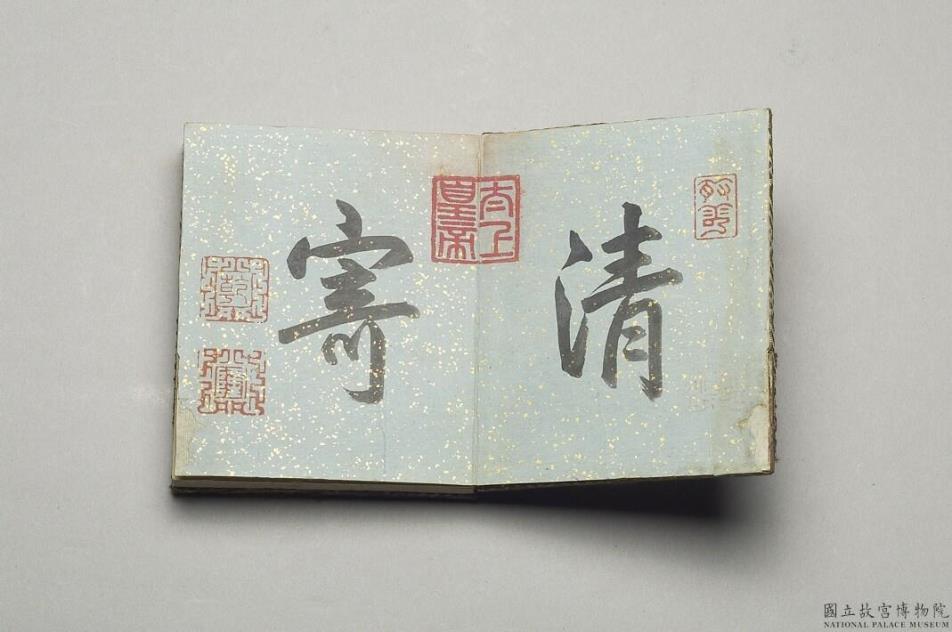 清寄
太上皇帝
國立故宮博物院
NATIONAL PALACE MUSEUM